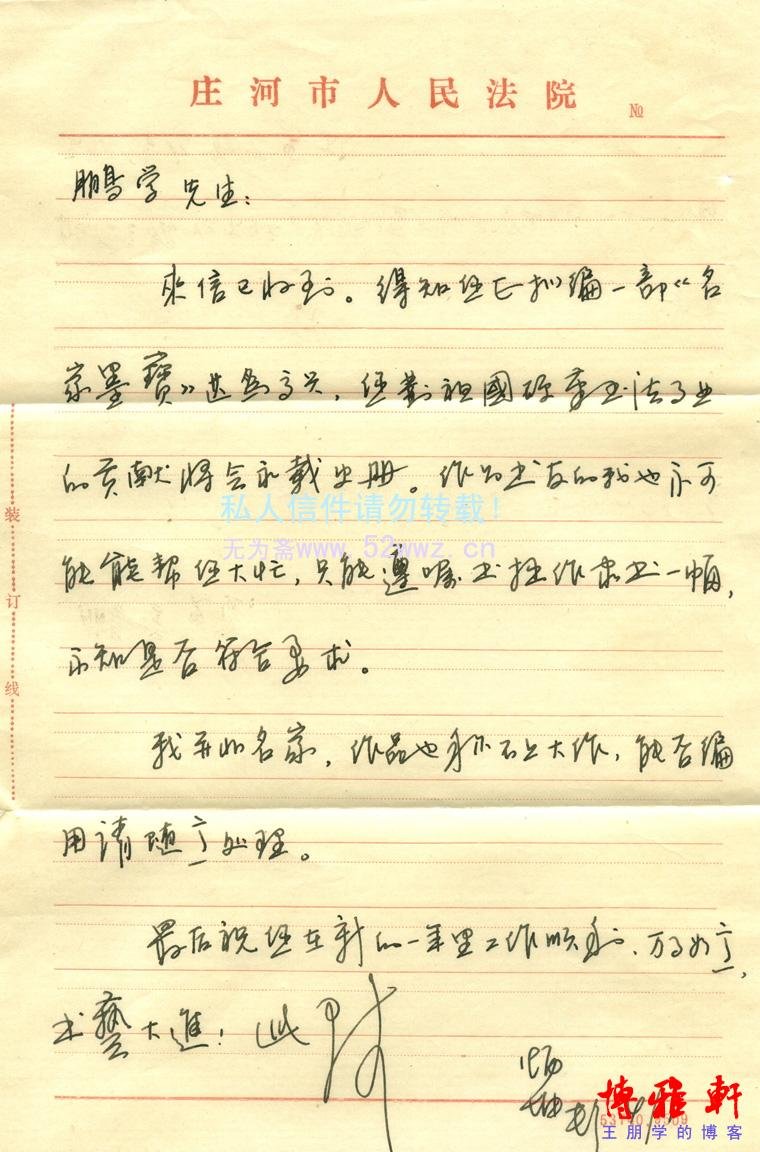 庄河市人民法院 №
鹏学先生：
来信已收到。得知您正拟编一部《名
家墨寶》甚为高兴，您對祖國碑書书法事业
的贡献将会永载史册。作为书友的我也不可
能能帮您大忙，只能遵嘱书拙作书一幅，
不知是否符合要求。
我并非名家，作品也称不上大作，能否编
用请随意处理。
最后祝您在新的一年里工作顺利、万事如意，
书藝大進！此致
装订线
私人信件请勿转载！
无为斋www.52wwz.cn
博雅軒
王朋学的博客